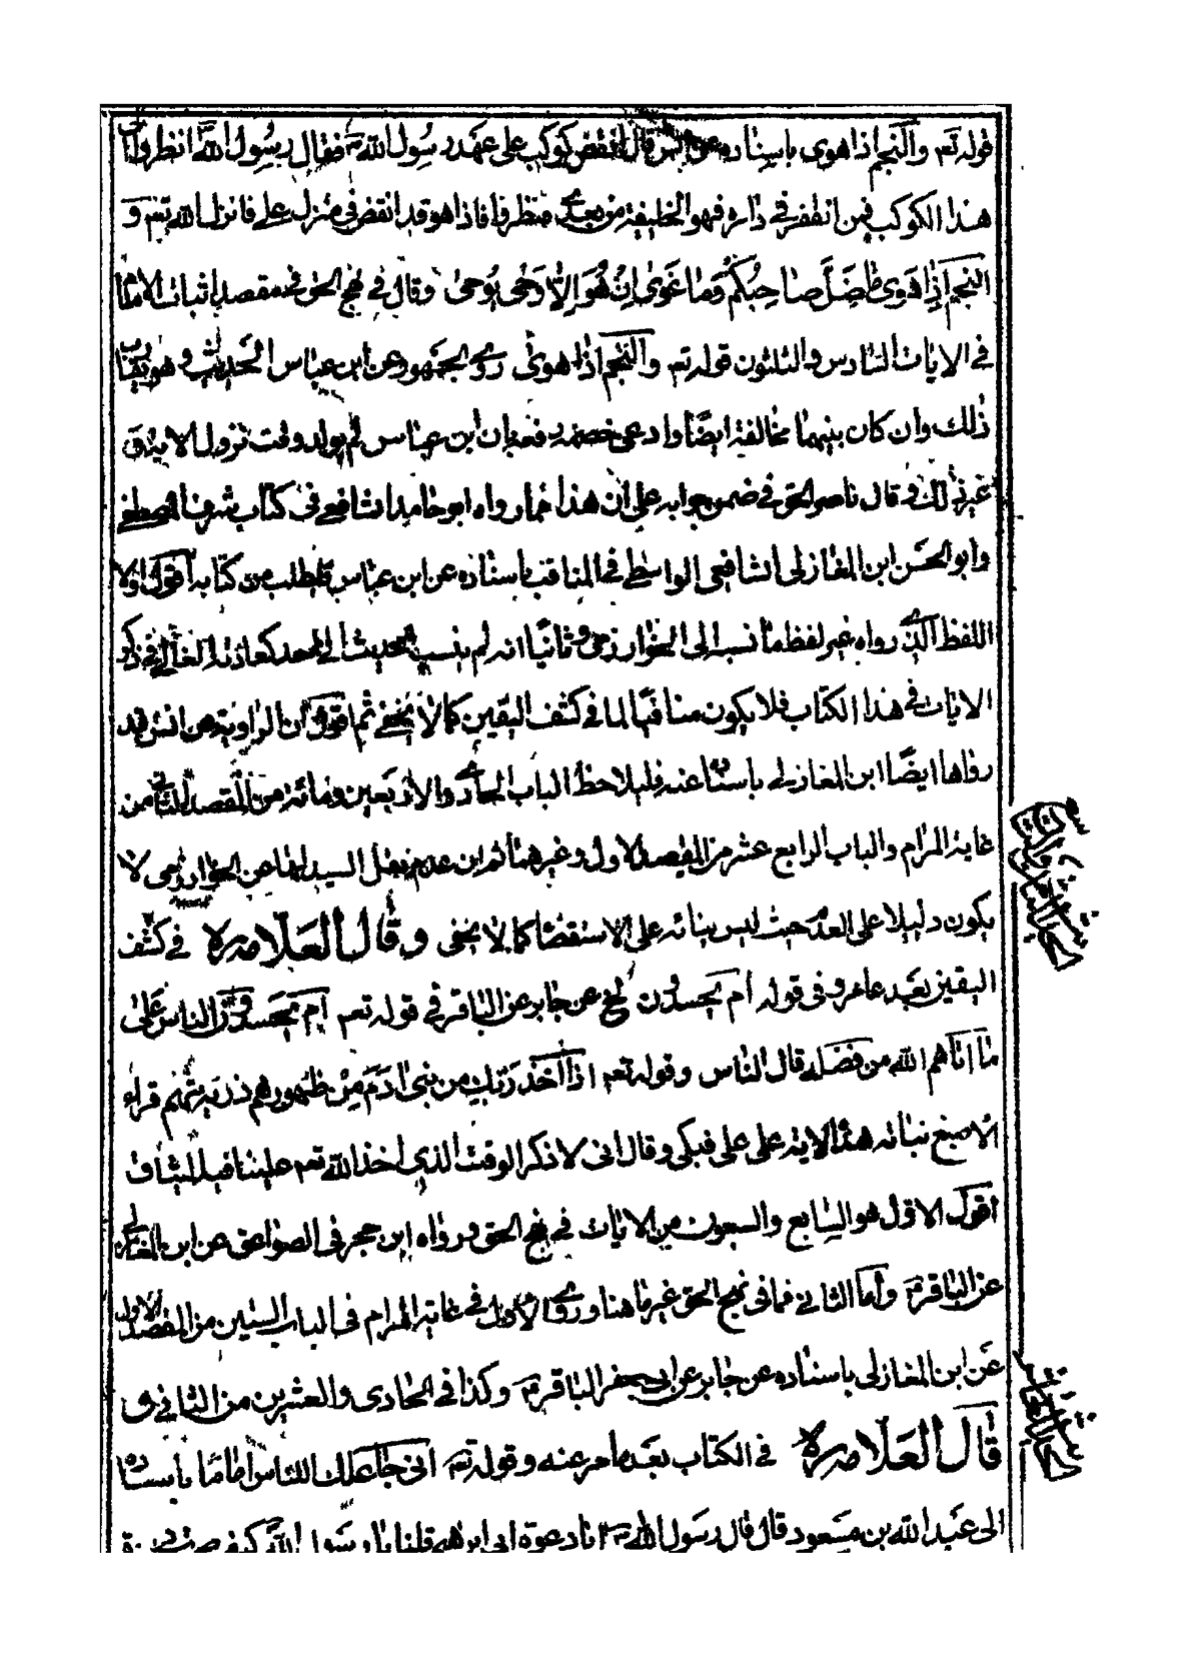 قوله تعـ والنجم اذا هوى باسناده عن انس قال انقض كوكب على عهد رسول الله ص فقال رسول الله انظروا
هذا الكوكب فمن انقض في داره فهو الخليفة من بعدي فنظروا فاذا هو قد انقض في منزل علي فانزل الله تعـ و
النجم اذا هوى ما ضل صاحبكم وما غوى ان هو الا وحى يوحى وقال في نهج الحق في مقصد اثبات الامامة
في الايات السادس والثلثون قوله تعـ والنجم اذا هوى روى الجمهور عن ابن عباس الحديث وهو
ذلك وان كان بينهما مخالفة ايضا وادعى خصمه ان ابن عباس لم يولد وقت نزول الاية
غير ذلك وقال ناصر الحق في ضمن جوابه على ان هذا مما رواه ابو حامد الشافعي في كتاب شرف المصطفى
وابو الحسن ابن المغازلى الشافعى الواسطي في المناقب باسناده عن ابن عباس فليطلب من كتابه اقول اولا
اللفظ الذي رواه غير لفظ ما نسبه الى الخوارزمى وثانيا انه لم ينسب الحديث الى احد كعادته الغالبة في ذكر
الايات في هذا الكتاب فلا يكون منافيا لما في كشف اليقين كما لا يخفى ثم اقول ان الرواية عن انس قد
رواها ايضا ابن المغازلي باسناده عنه فليلاحظ الباب الحادي والاربعين ومائة من المقصد الثاني من
غاية المرام والباب الرابع عشر من المقصد الاول وغيرهما ثم ان عدم نقل السيد لها عن الخوارزمى لا
يكون دليلا على العدم حيث ليس بنائه على الاستقصاء كما لا يخفى وقال العلامة ره في كشف
اليقين بعد ما مر وفى قوله ام يحسدون الخ عن جابر عن الباقر في قوله تعـ ام يحسدون الناس على
ما اتاهم الله من فضله قال الناس وقوله تعـ اذ اخذ ربك من بنى ادم من ظهورهم ذريتهم قراء
الاصبغ نباته هذه الاية على على فبكى وقال انى لاذكر الوقت الذى اخذ الله تعـ علينا فيه الميثاق
اقول الاول هو السابع والسبعون من الايات في نهج الحق ورواه ابن حجر فى الصواعق عن ابن المغازلي
عن الباقر ع واما الثاني فما فى نهج الحق غير ما هنا وروى الاول في غاية المرام فى الباب الستين من المقصد الاول
عن ابن المغازلى باسناده عن جابر عن ابى جعفر الباقر ع وكذا في الحادى والعشرين من الثاني و
قال العلامة ره في الكتاب بعد ما مر عنه وقوله تعـ انى جاعلك للناس اماما باسناده
الى عبد الله بن مسعود قال قال رسول الله ص انا دعوة ابى ابراهيم قلنا يا رسول الله كيف صرت